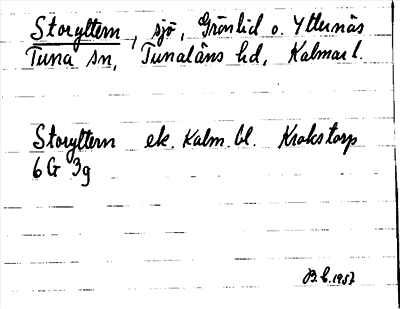 Storyltern, sjö, Grönlid o. Ytternäs
Tuna sn, Tunaläns hd, Kalmar l.
Storyltern ek. Kalm. bl. Krokstorp
6G 3g
B.E. 1957